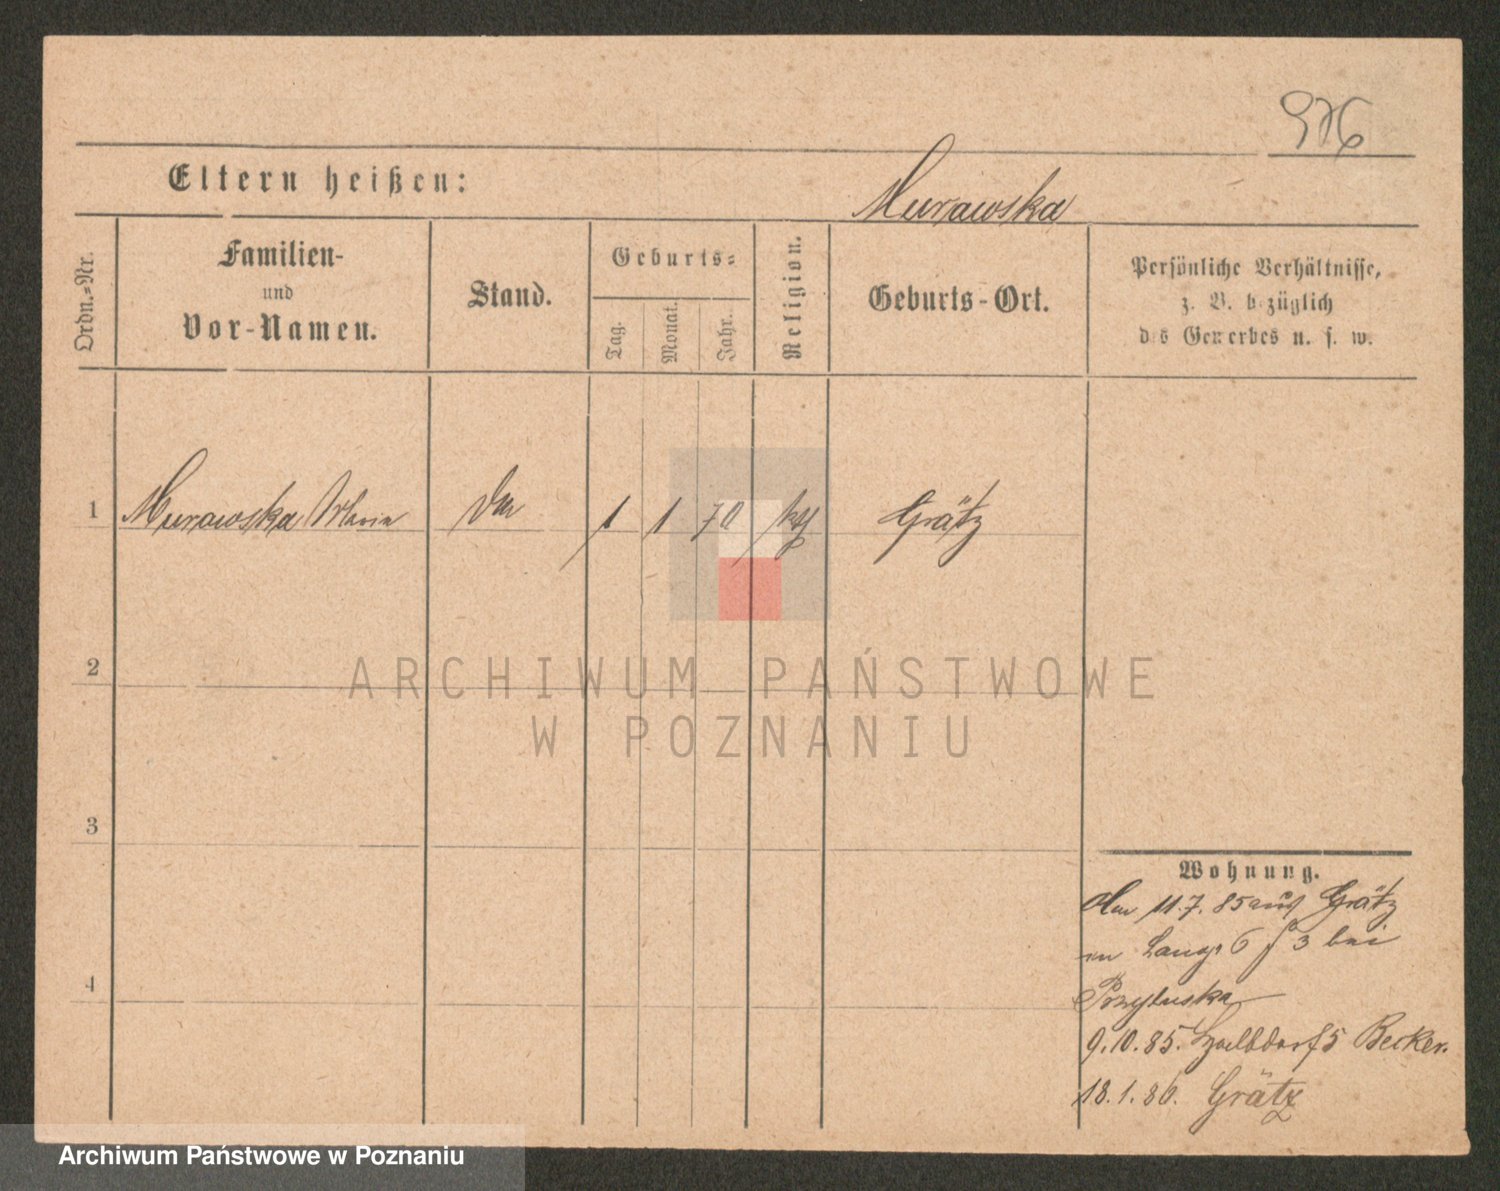 976
Eltern heißen:
Murawska
Ordn.-Nr.
Familien-
und
Vor-Namen.
Stand.
Geburts-
Tag.
Monat.
Jahr.
Religion.
Geburts-Ort.
Persönliche Verhältnisse,
z. B. bezüglich
des Gewerbes u. s. w.
1 Murawska Maria 1 1 70 kath Grätz
2
3
4
ARCHIWUM PAŃSTWOWE
W POZNANIU
Wohnung.
11.7.85 aus Grätz
Langs 6 3 bei
Przyluska
9.10.85. Halbdorf 5 Becker.
18.1.86. Grätz
Archiwum Państwowe w Poznaniu